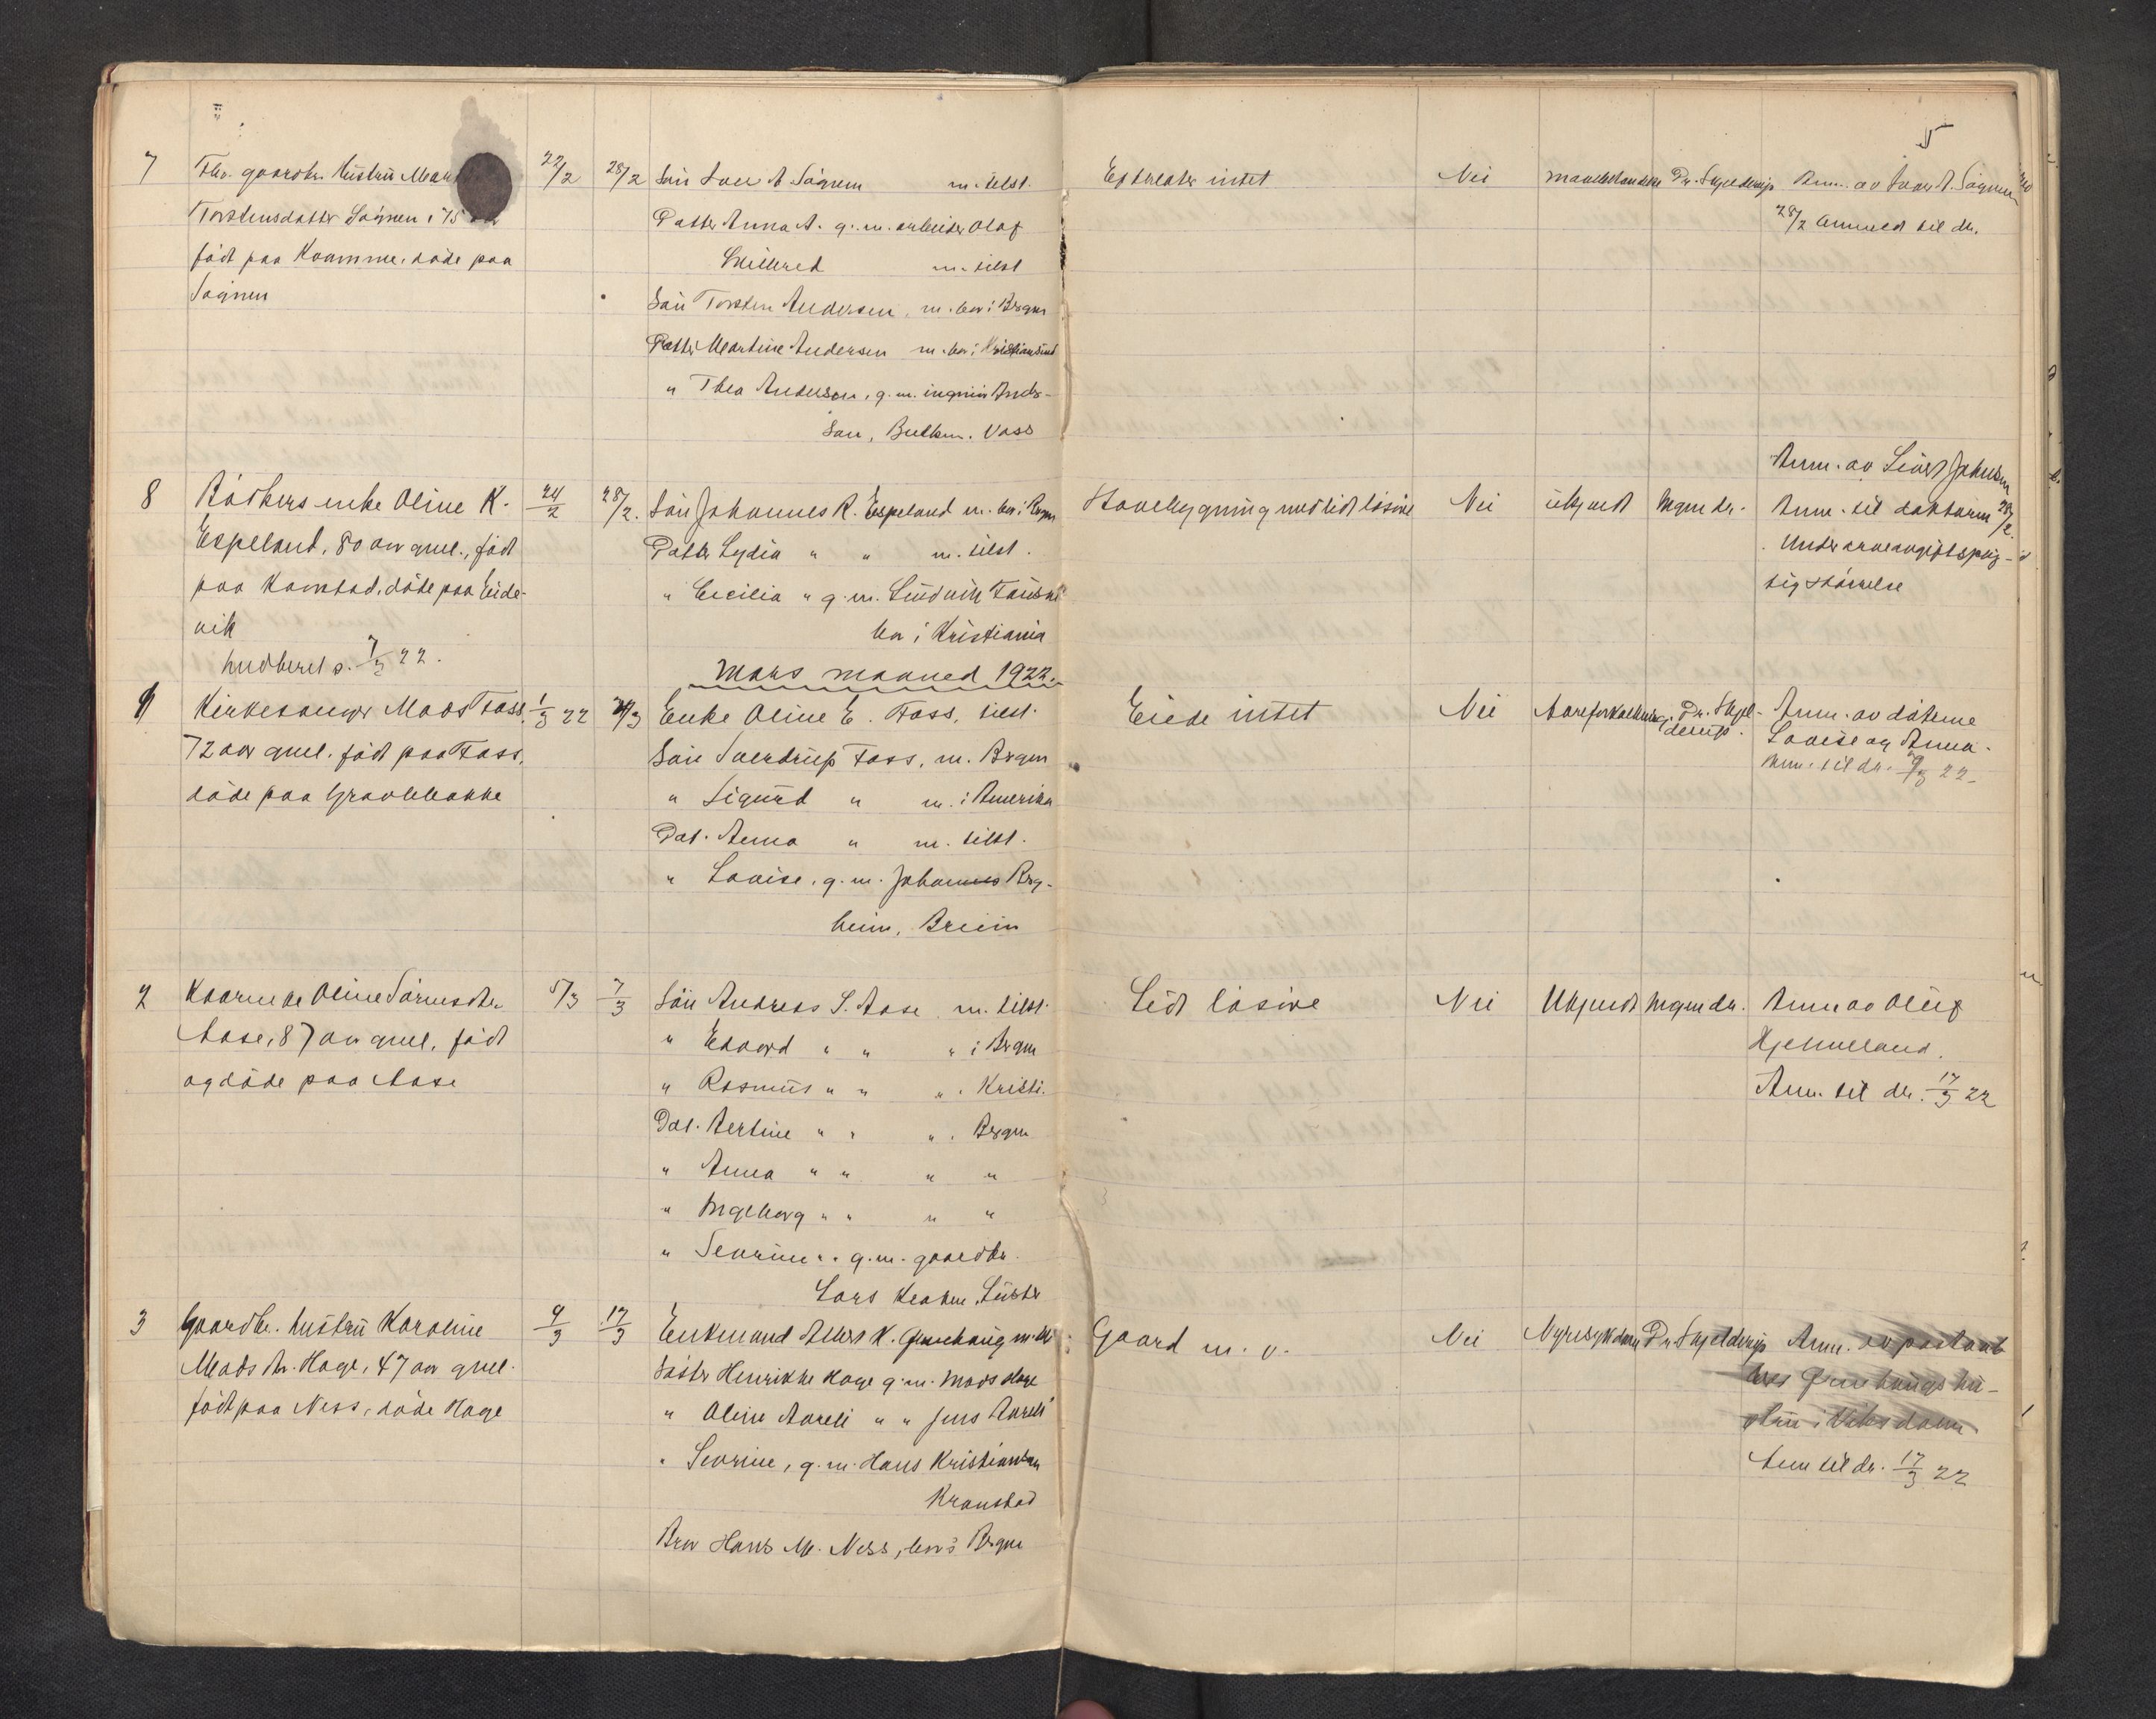 5
7 Fhv. gaardbr. hustru
Torstensdatter Sögnen i 75
född paa Kvamme, döde paa
Sögnen
22/2 28/2
Sön Ivar A Sögnen m. tilst.
Datter Anna A. g. m. arbeider Olaf
m. tilst
Sön Torsten Andersen, m. bor i Bergen
Datter Martine Andersen m. bor i Kristiansund
" Thea Andersen, g. m. ingeniör Anders-
sen, Voss
Efterlater intet
Nei
Dr. Skjelderup
Anm. av Ivar A. Sögnen
28/2 Anmeldt til dr.
8 Bödkers enke Oline K.
Espeland, 80 aar gml., född
paa Kamstad, döde paa Eide-
vik
Indberet s. 7/3 22.
24/2 28/2.
Sön Johannes R. Espeland m. bor i Bergen
Datter Lydia " " m. tilst.
" Cecilia " g. m. Ludvik
bor i Kristiania
Havebygning med lidt lösöre
Nei
ukjendt
Ingen dr.
Anm. av Sivert Johnsen
Anm. til doktoren 28/2.
Under arveavgiftsplig-
tig störrelse
Mars maaned 1922.
1 Kirkesanger Mads Fass,
72 aar gml. född paa Fass,
döde paa Graabakke
1/3 22 7/3
Enke Oline E. Fass, tilst.
Sön Sverdrup Fass, m. Bergen
" Sigurd " m. i Amerika
Dat. Anna " m. tilst.
" Lovise, g. m. Johannes Berg-
heim, Breim
Eiede intet
Nei
Aareforkalkning
Dr. Skjel-
derup.
Anm. av döterne
Lovise og Anna.
Anm. til dr. 9/3 22
2 Kaarenke Oline Sörensdtr.
Aase, 87 aar gml. född
og döde paa Aase
5/3 7/3
Sön Andreas S. Aase m. tilst.
" Edvard " " " i Bergen
" Rasmus " " " . Kristi.
Dat. Bertine " " " . Bergen
" Anna " " " "
" Ingeborg " " " "
" Severine " " g. m. gaardbr.
Lars Luster
Lidt lösöre
Nei
Ukjendt
Ingen dr.
Anm av Oluf
Hjelmeland.
Anm. til dr. 17/3 22
3 Gaardbr. hustru Karoline
Madsdtr. Hage, 47 aar gml.
född paa Ness, döde Hage
9/3 17/3
Enkemand Albert K. Grønhaug m. tilst
Söster Henrikke Hage g. m. Mads Hage
" Oline Aareli " " Jens Aareli
" Severine, g. m. Hans Kristiansen
Kranstad
Bror Hans M. Ness, bor i Bergen
Gaard m. v.
Nei
Nyresykdom
Dr. Skjelderup
Anm. av
Anm til dr. 17/3 22